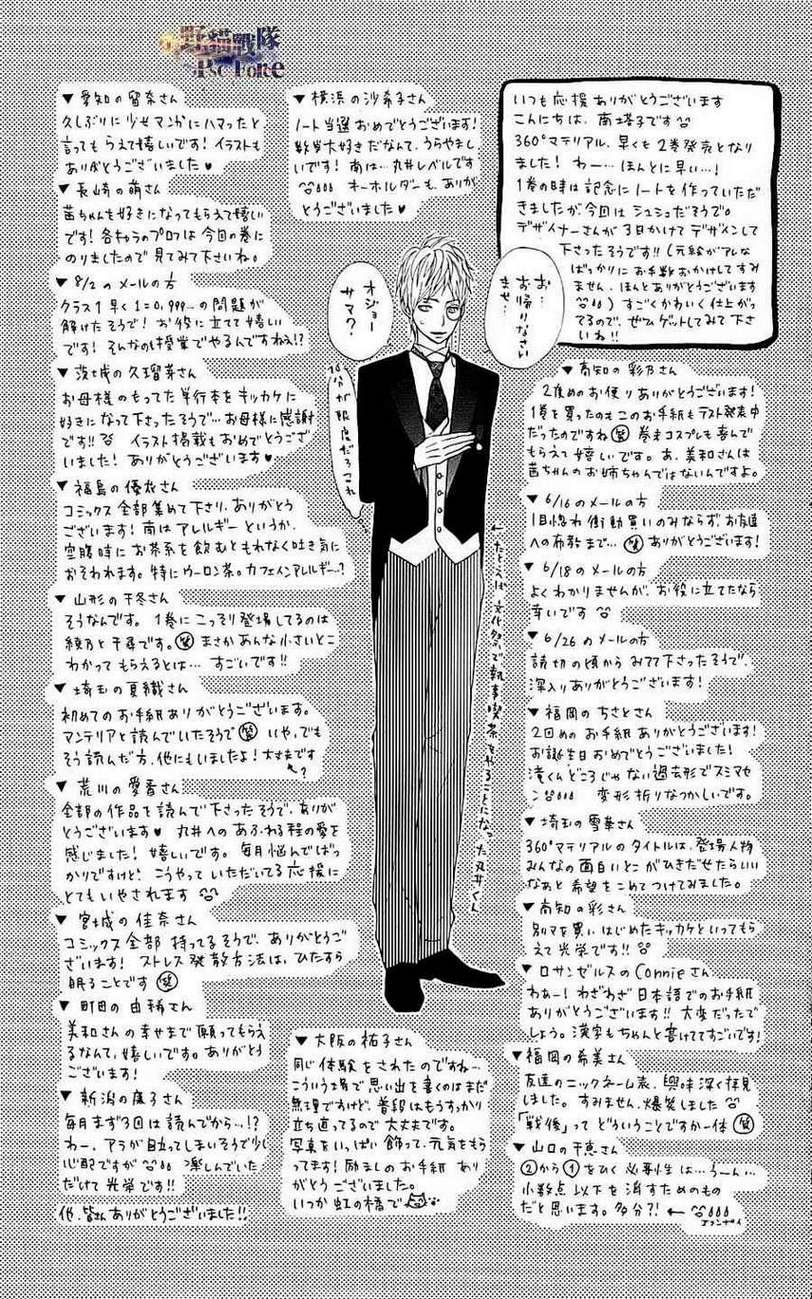 野猫戰隊
いつも応援ありがとうございます
こんにちは、南塔子です
360°マテリアル、早くも2巻発売となり
ました! わー…ほんとに早い…!
1巻の時は記念にノートを作っていただ
きましたが、今回はシュシュだそうで。
デザイナーさんが3日かけてデザインして
下さったそうです!!(元絵がアレな
ばっかりにお手数おかけしてすみ
ません、ほんとありがとうございます
)すごくかわいく仕上がっ
てるので、ぜひゲットしてみて下さ
いね!!
▼横浜の沙希子さん
ノート当選おめでとうございます!
数学大好きだなんて、うらやまし
いです!南は…丸井レベルです
キーホルダーも、ありが
とうございました♥
▼愛知の留奈さん
久しぶりに少女マンガにハマったと
言ってもらえて嬉しいです!イラストも
ありがとうございました♥
▼長崎の萌さん
茜ちゃんを好きになってもらえて嬉しい
です!各キャラのプロフは今回の巻に
のりましたので見てみて下さいね。
▼8/2のメールの方
クラス1早く1=0.999…の問題が
解けたそうで!お役に立てて嬉しい
です!そんなのも授業でやるんですねぇ!?
▼茨城の久瑠美さん
お母様のもってた単行本をキッカケに
好きになって下さったそうで…お母様に感謝
です!! イラスト掲載もおめでとうござ
いました!ありがとうございます♥
▼福島の優衣さん
コミックス全部集めて下さり、ありがとう
ございます!南はアレルギーというか、
空腹時にお茶系を飲むともれなく吐き気に
おそわれます。特にウーロン茶。カフェインアレルギー…?
▼山形の千冬さん
そうなんです。1巻にこっそり登場してるのは
綾乃と千尋です。㊗まさかあんな小さいとこ
わかってもらえるとは…すごいです!!
▼埼玉の夏織さん
初めてのお手紙ありがとうございます。
マンテリアと読んでいたそうで(笑)いや、でも
そう読んだ方、他にもいましたよ!大丈夫です
↑?
▼荒川の愛香さん
全部の作品を読んで下さったそうで、ありが
とうございます♥丸井へのあふれる程の愛を
感じました!嬉しいです。毎月悩んでばっ
かりですけど!こうやっていただいてる応援に
とてもいやされます
▼宮城の佳奈さん
コミックス全部持ってるそうで、ありがとうご
ざいます!ストレス発散方法は、ひたすら
眠ることです(笑)
▼町田の由稀さん
美和さんの幸せまで願ってもらえ
るなんて、嬉しいです。ありがとう
ございます!
▼新潟の康子さん
毎月まず3回は読んでから…!?
わー、アラが目立ってしまいそうで少し
心配ですが 楽しんでいた
だけて光栄です!!
他、皆さんありがとうございました!!
お…
お帰りなさい
ませ…
オジョー
サマ?
10分が限度だろコレ
←たとえば文化祭で執事喫茶をやることになった丸井くん
▼大阪の祐子さん
同じ体験をされたのですね…
こういう場で思い出を書くのはまだ
無理ですけど、普段はもうすっかり
立ち直ってるので大丈夫です。
写真をいっぱい飾って、元気をもら
ってます!励ましのお手紙あり
がとうございました。
いつか虹の橋で
▼高知の彩乃さん
2度めのお便りありがとうございます!
1巻を買ったのもこのお手紙もテスト発表中
だったのですね(笑)巻末コスプレも喜んで
もらえて嬉しいです。あ、美和さんは
茜ちゃんのお姉ちゃんではないんですよ。
▼6/16のメールの方
1目惚れ衝動買いのみならず、お友達
への布教まで…(笑)ありがとうございます!
▼6/18のメールの方
よくわかりませんが、お役に立てたなら
幸いです
▼6/26のメールの方
読切の頃からみてて下さったそうで、
深入りありがとうございます!
▼福岡のちさとさん
2回めのお手紙ありがとうございます!
お誕生日おめでとうございました!
滝くんどころじゃない過去形でスミマセ
ン 変形折りなつかしいです。
▼埼玉の雪華さん
360°マテリアルのタイトルは、登場人物
みんなの面白いとこがひきだせたらいい
なぁと希望をこめてつけてみました。
▼高知の彩さん
別マを買いはじめたキッカケといってもら
えて光栄です!!
▼ロサンゼルスのConnieさん
わぁー!わざわざ日本語でのお手紙
ありがとうございます!!大変だったで
しょう。漢字もちゃんと書けててすごいです!
▼福岡の希美さん
友達のニックネーム表、興味深く拝見
しました。すみません、爆笑しました
「戦後」ってどういうことですか一体(笑)
▼山口の千恵さん
②から①をひく必要性は…うーん…
小数点以下を消すためのもの
だと思います。多分?! ←